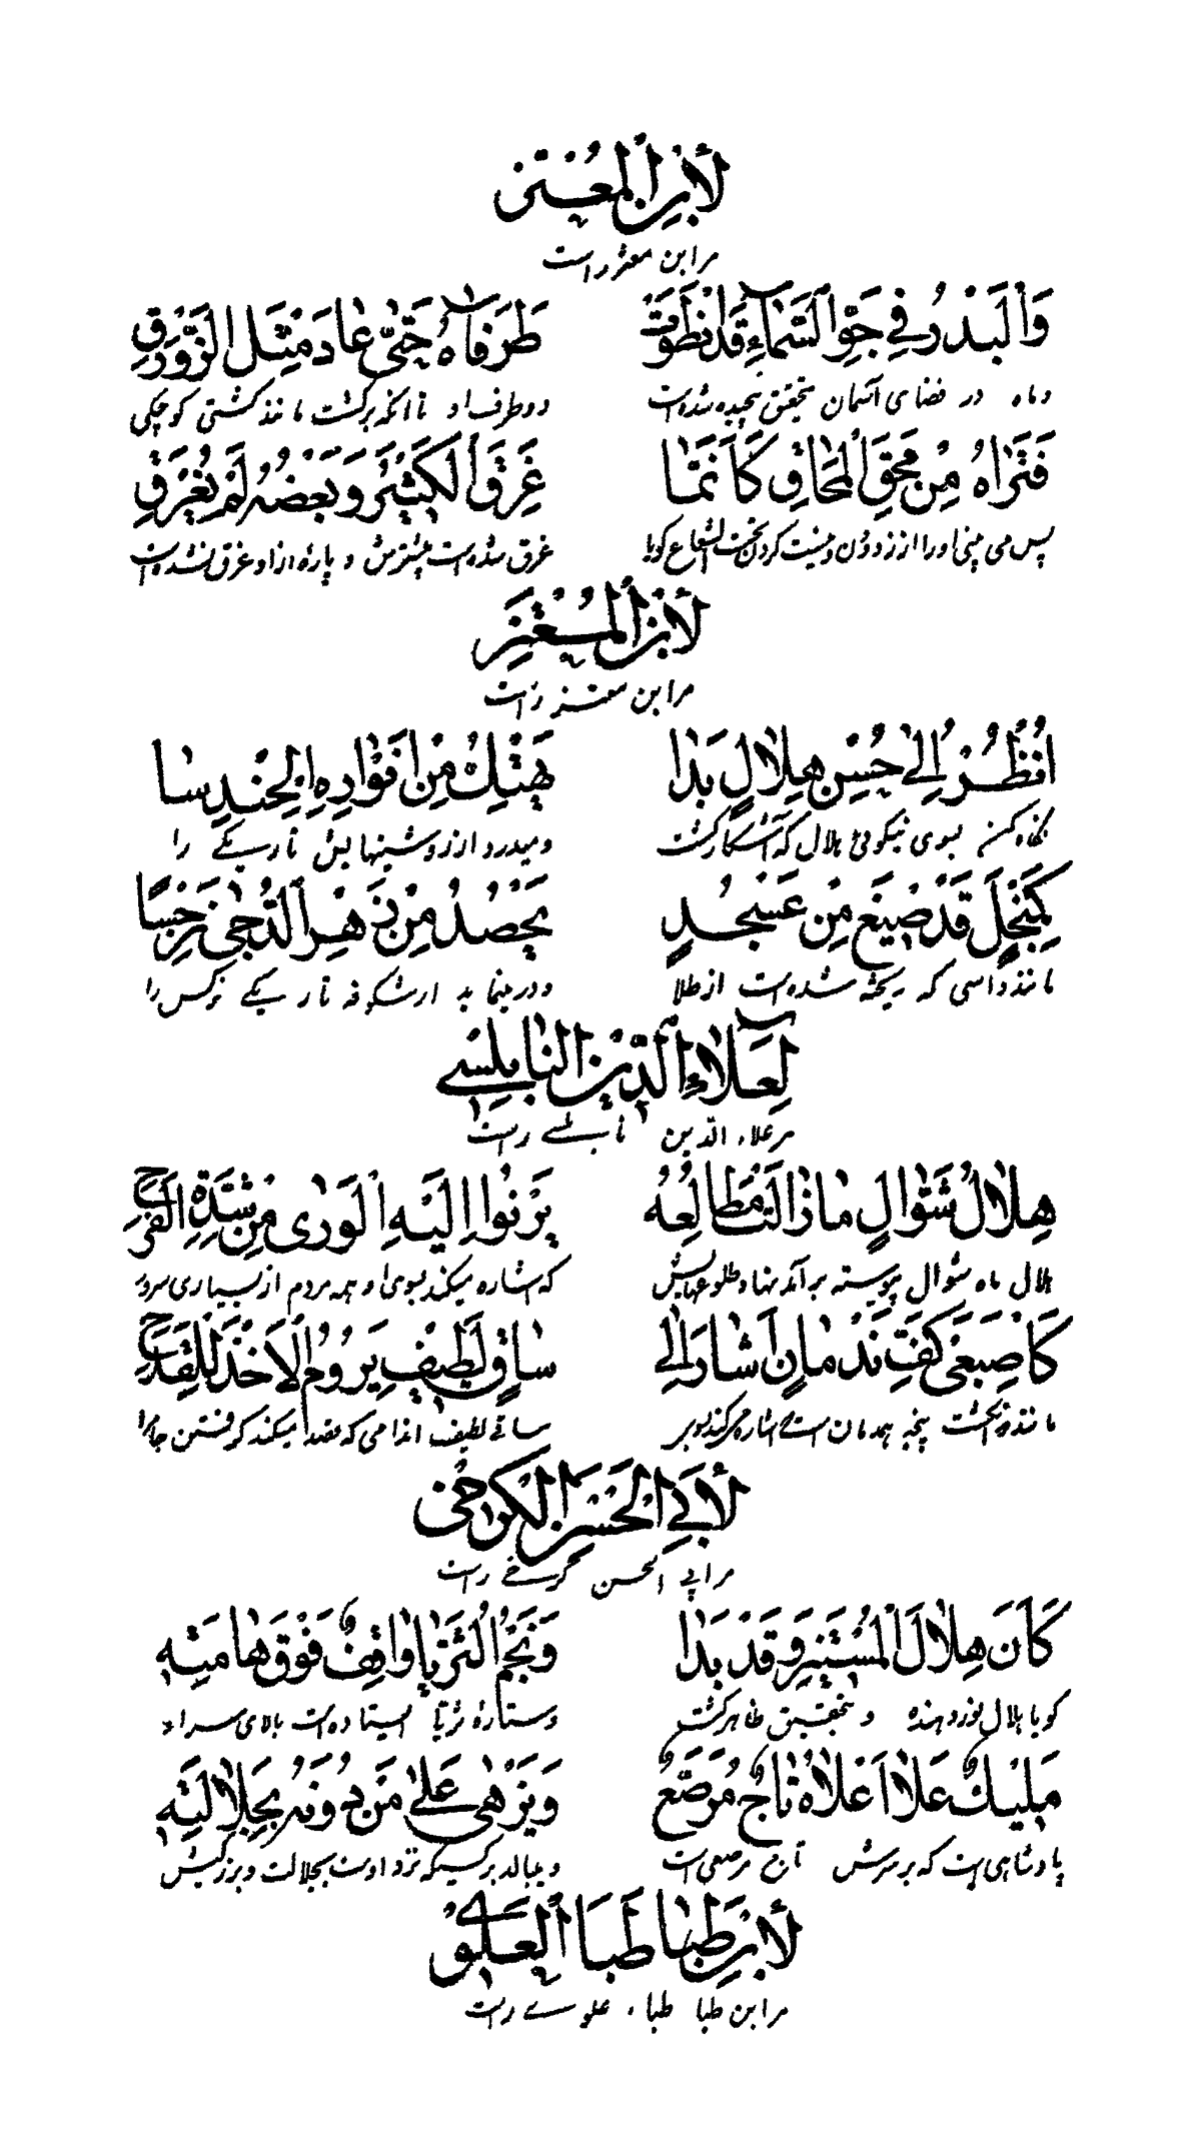 لِأَبْنِ الْمُعْتَز
مر ابن معتز راست
وَالْبَدْرُ فِي جَوِّ السَّمَاءِ قَدِ انْطَوَتْ طَرَفَاهُ حَتَّى عَادَ مِثْلَ الزَّوْرَقِ
و ماه در فضای آسمان بتحقیق پیچیده شده است دو طرف او تا آنکه برگشت مانند کشتی کوچکی
فَتَرَاهُ مِنْ مَحْقِ الْمَحَاقِ كَأَنَّمَا غَرِقَ الْكَثِيرُ وَبَعْضُهُ لَمْ يَغْرَقِ
پس می بینی او را از زدودن و نیست کردن تحت الشعاع گویا غرق شده است بیشترش و پارهٔ از او غرق نشده است
لِأَبْنِ الْمُعْتَزِّ
مر ابن معتز راست
انْظُرْ إِلَى حُسْنِ هِلَالٍ بَدَا يَهْتِكُ مِنْ أَنْوَارِهِ الْحِنْدِسَا
نگاه کن بسوی نیکوئی هلال که آشکار گشت و میدرد از روشنیهایش تاریکی را
كَمِنْجَلٍ قَدْ صِيغَ مِنْ عَسْجَدٍ يَحْصُدُ مِنْ زَهْرِ الدُّجَى نَرْجِسَا
مانند داسی که ریخته شده است از طلا و درمینماید از شکوفه تاریکی نرگس را
لِعَلَاءِ الدِّينِ النَّابُلُسِي
مر علاء الدین نابلسی راست
هِلَالُ شَوَّالٍ مَا زَالَتْ مَطَالِعُهُ يَرْنُوا إِلَيْهِ الْوَرَى مِنْ شِدَّةِ الْفَرَحِ
هلال ماه شوال پیوسته برآمدنها و طلوعهایش که اشاره میکند بسوی او همه مردم از بسیاری سرور
كَإِصْبَعَيْ كَفِّ نَدْمَانٍ أَشَارَ إِلَى سَاقٍ لَطِيفٍ يَرُومُ الْأَخْذَ لِلْقَدَحِ
مانند دو انگشت پنجه همدمان است اشاره میکند بر ساقی لطیف اندامی که قصد میکند گرفتن جام را
لِأَبِي الْحَسَنِ الْكَرْخِي
مر ابی الحسن کرخی راست
كَأَنَّ هِلَالَ الْمُسْتَنِيرِ وَقَدْ بَدَا وَنَجْمُ الثُّرَيَّا وَاقِفٌ فَوْقَ هَامَتِهِ
گویا هلال نوردهنده و بتحقیق ظاهر گشت و ستارهٔ ثریا ایستاده است بالای سر او
مَلِيكٌ عَلَا أَعْلَاهُ تَاجٌ مُرَصَّعٌ وَيَزْهَى عَلَى مَنْ دُونَهُ بِجَلَالَتِهِ
پادشاهی است که بر سرش تاج مرصعی است و میبالد بر کسیکه نزد اوست بجلالت و بزرگیش
لِأَبْنِ طَبَاطَبَا الْعَلَوِي
مر ابن طبا طباء علوی راست